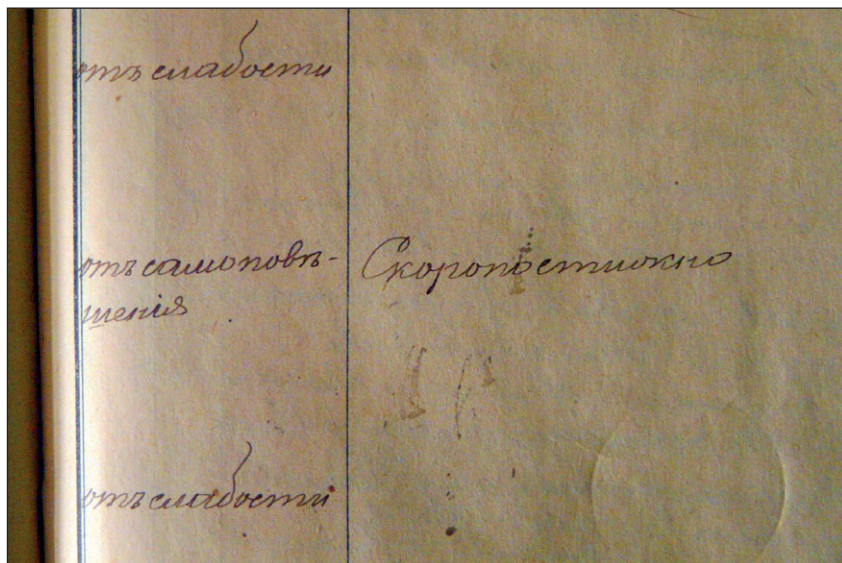 отъ слабости
отъ самоповѣ-
шенія
Скоропостижно
отъ слабости